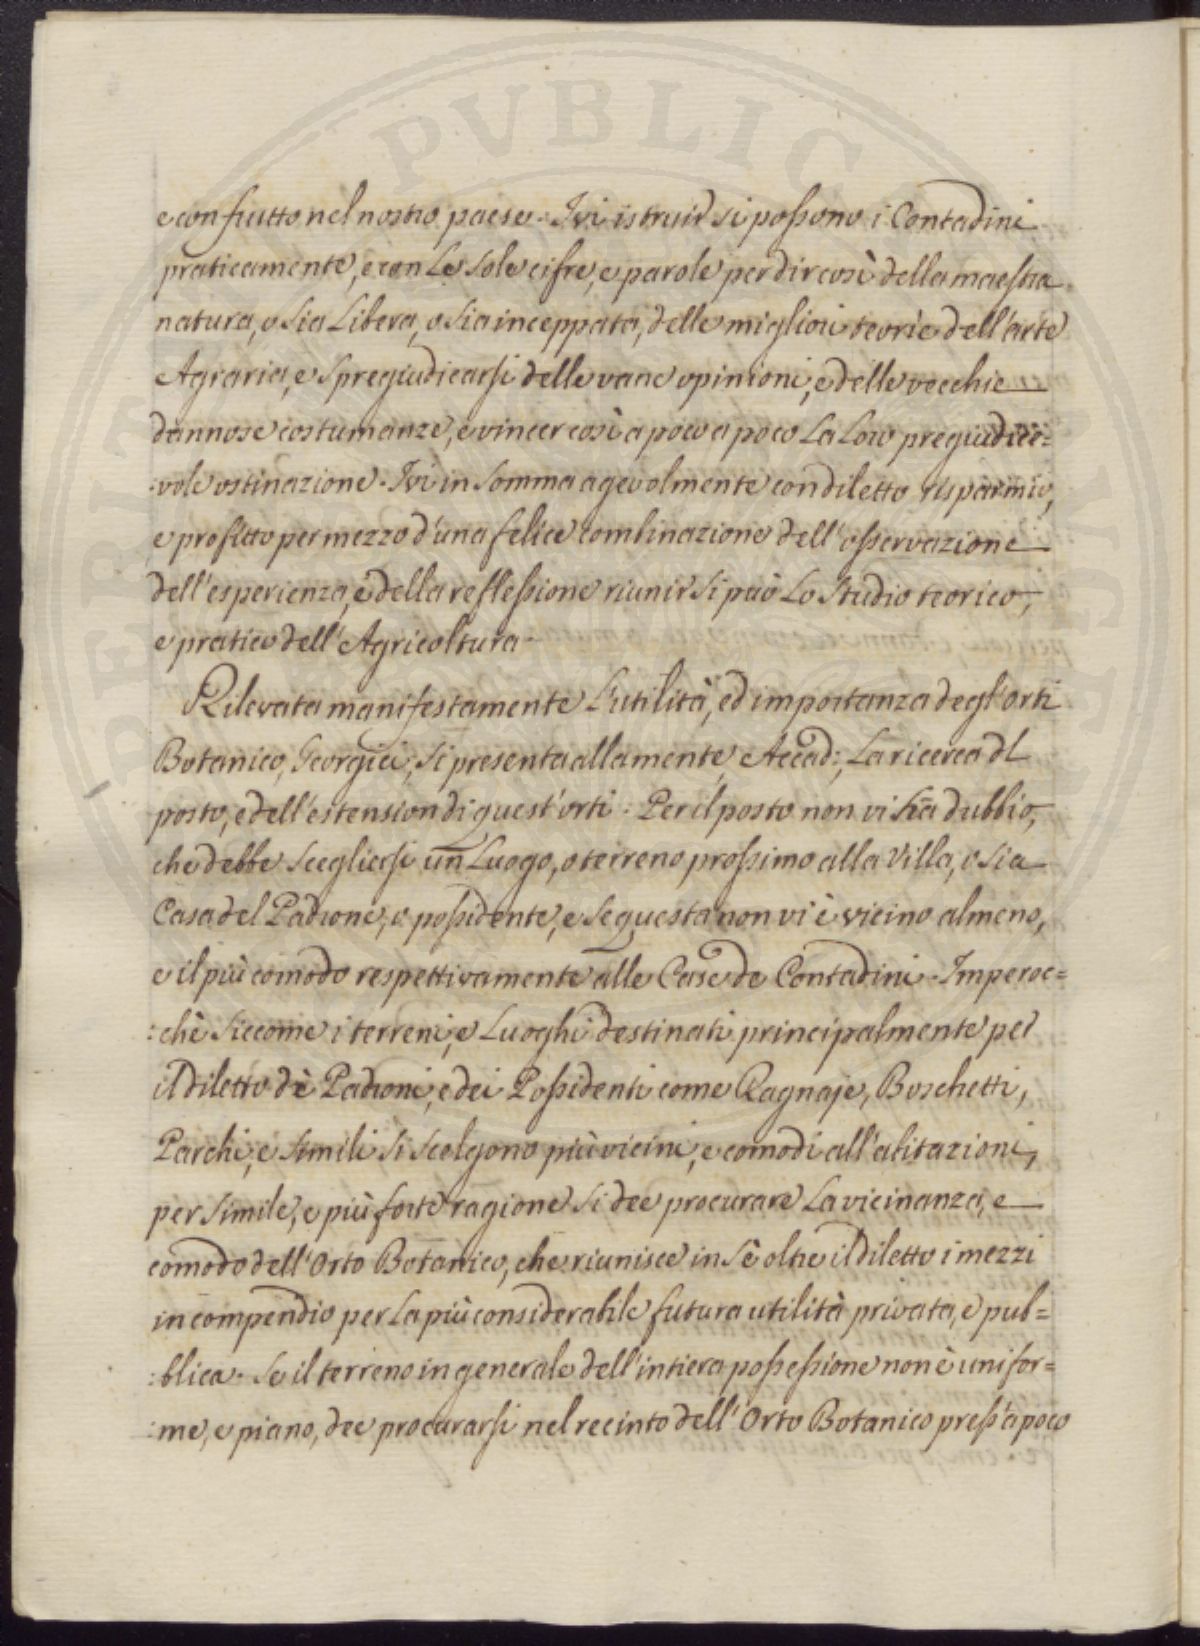 PVBLIC
e con frutto nel nostro paese. Ivi istruir si possono i Contadini
praticamente, e con Le sole cifre, e parole per dir così della maestra
natura, o sia Libera, o sia inceppata, delle migliori teorie dell'arte
Agraria, e spregiudicarsi delle vane opinioni, e delle vecchie
dannose costumanze, e vincer così a poco a poco La Loro pregiudice=
:vole ostinazione. Ivi in somma agevolmente con diletto risparmio,
e profitto per mezzo d'una felice combinazione dell'osservazione
dell'esperienza, e della reflessione riunir si può Lo Studio teorico,
e pratico dell'Agricoltura.
Rilevata manifestamente L'utilità, ed importanza degl'orti
Botanico, Georgici, si presenta alla mente, Accad:, La ricerca dl
posto, e dell'estension di quest'orti. Per il posto non vi sia dubbio,
che debbe scegliersi un Luogo, o terreno prossimo alla Villa, o sia
Casa del Padrone, o possidente, e se questa non vi è vicino almeno,
e il più comodo respettivamente alle Case de Contadini. Imperoc=
:chè siccome i terreni, e Luoghi destinati principalmente per
il diletto dè Padroni, e dei Possidenti come Ragnaje, Boschetti,
Parchi, e simili si scelgono più vicini, e comodi all'abitazioni,
per simile, e più forte ragione si dee procurare La vicinanza, e
comodo dell'Orto Botanico, che riunisce in sè oltre il diletto i mezzi
in compendio per La più considerabile futura utilità privata, e pub=
:blica. Se il terreno in generale dell'intiera possessione non è unifor=
:me, e piano, dee procurarsi nel recinto dell'Orto Botanico press'a poco